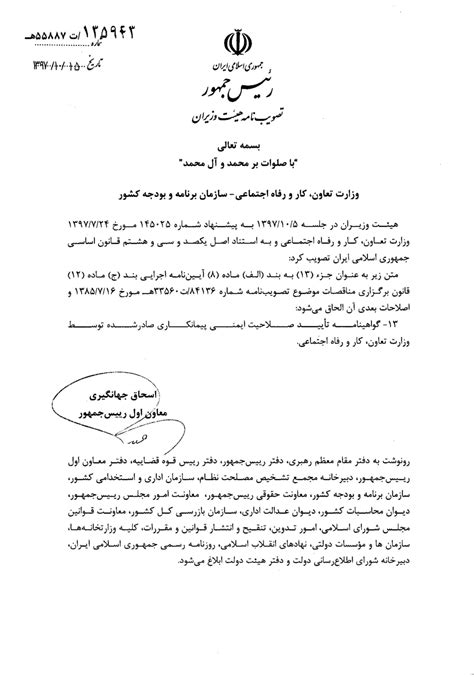 شماره ۱۳۵۹۴۳/ت ۵۵۸۸۷هـ
تاریخ ۱۳۹۷/۱۰/۰۵
جمهوری اسلامی ایران
رئیس جمهور
تصویب نامه هیئت وزیران
بسمه تعالی
"با صلوات بر محمد و آل محمد"
وزارت تعاون، کار و رفاه اجتماعی- سازمان برنامه و بودجه کشور
هیئت وزیران در جلسه ۱۳۹۷/۱۰/۵ به پیشنهاد شماره ۱۴۵۰۲۵ مورخ ۱۳۹۷/۷/۲۴
وزارت تعاون، کار و رفاه اجتماعی و به استناد اصل یکصد و سی و هشتم قانون اساسی
جمهوری اسلامی ایران تصویب کرد:
متن زیر به عنوان جزء (۱۳) به بند (الف) ماده (۸) آیین‌نامه اجرایی بند (ج) ماده (۱۲)
قانون برگزاری مناقصات موضوع تصویب‌نامه شماره ۸۴۱۳۶/ت۳۳۵۶۰هـ مورخ ۱۳۸۵/۷/۱۶ و
اصلاحات بعدی آن الحاق می‌شود:
۱۳- گواهینامه تأیید صلاحیت ایمنی پیمانکاری صادرشده توسط
وزارت تعاون، کار و رفاه اجتماعی.
اسحاق جهانگیری
معاون اول رییس‌جمهور
رونوشت به دفتر مقام معظم رهبری، دفتر رییس‌جمهور، دفتر رییس قوه قضاییه، دفتر معاون اول
رییس‌جمهور، دبیرخانه مجمع تشخیص مصلحت نظام، سازمان اداری و استخدامی کشور،
سازمان برنامه و بودجه کشور، معاونت حقوقی رییس‌جمهور، معاونت امور مجلس رییس‌جمهور،
دیوان محاسبات کشور، دیوان عدالت اداری، سازمان بازرسی کل کشور، معاونت قوانین
مجلس شورای اسلامی، امور تدوین، تنقیح و انتشار قوانین و مقررات، کلیه وزارتخانه‌ها،
سازمان ها و مؤسسات دولتی، نهادهای انقلاب اسلامی، روزنامه رسمی جمهوری اسلامی ایران،
دبیرخانه شورای اطلاع‌رسانی دولت و دفتر هیئت دولت ابلاغ می‌شود.